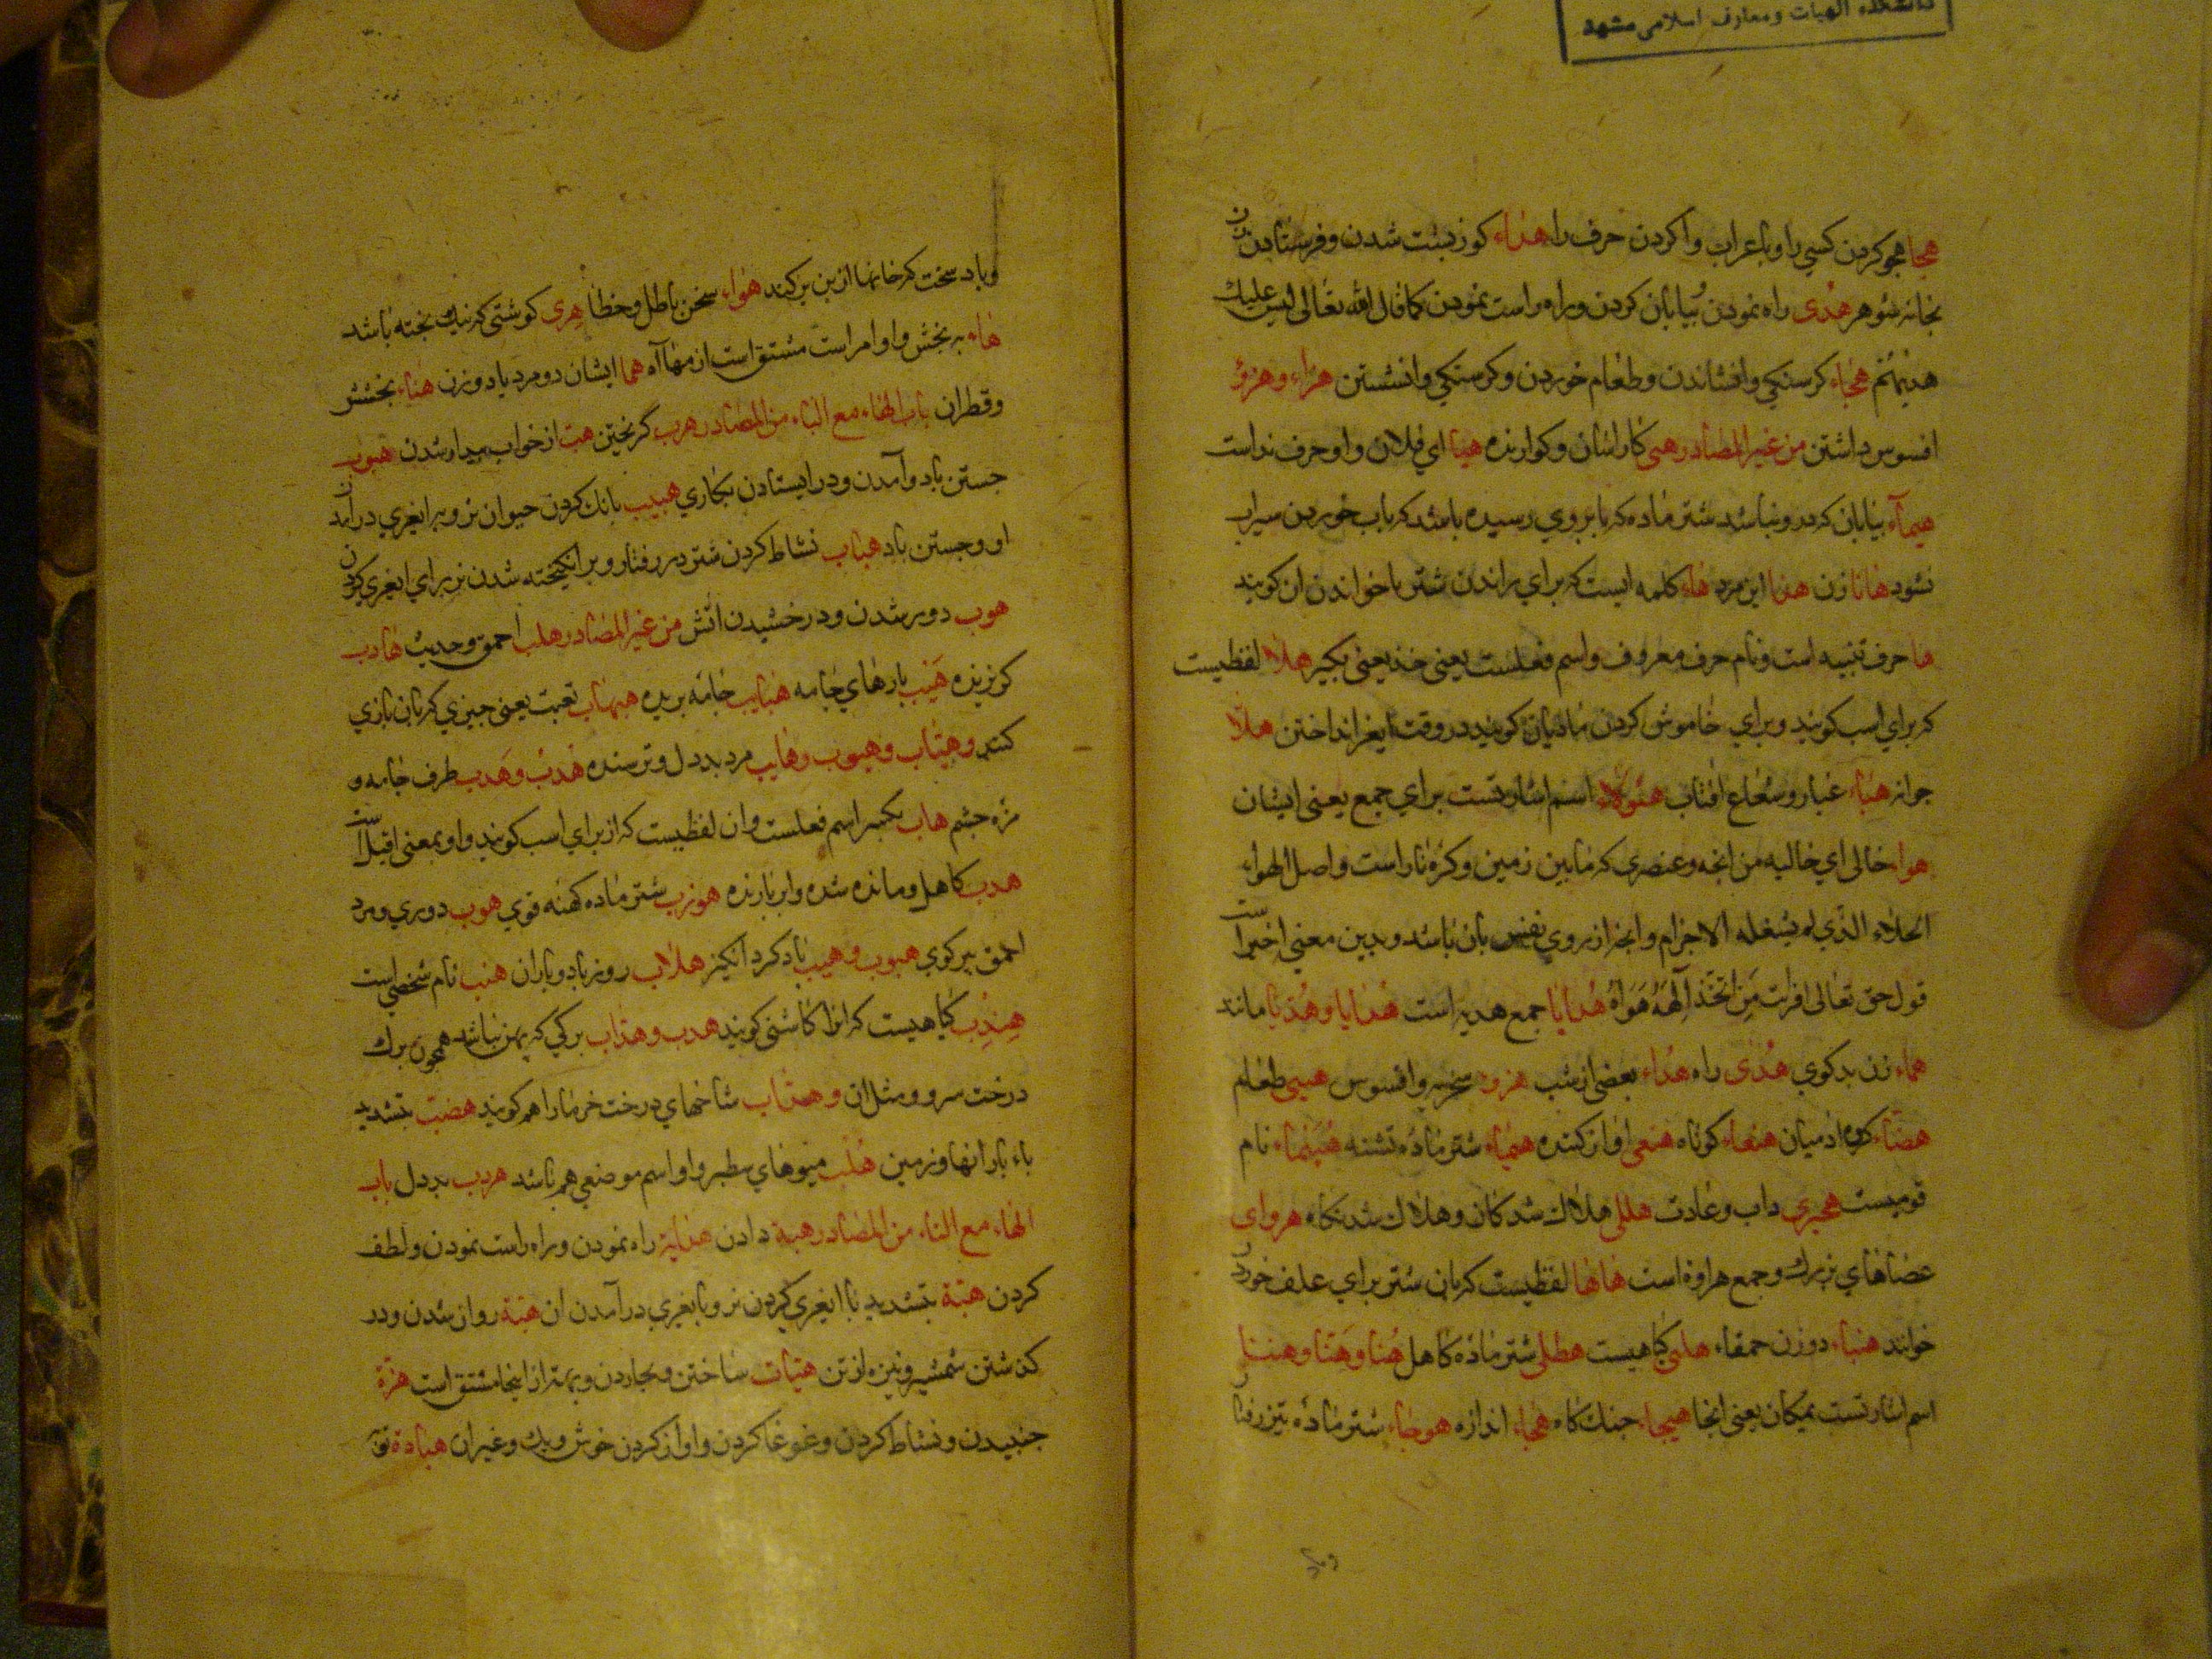 دانشکده الهیات و معارف اسلامی مشهد
هجا هجو کردن کسی را و باعراب وا کردن حرف را هداء کوز پشت شدن و فرستادن زن
بخانه شوهر هدی راه نمودن و بیابان کردن و راه راست نمودن کما قال الله تعالی لیس علیک
هدیهم هجاء کرسنکی وافشاندن و طعام خوردن و کرسنکی وانشستن هزاء و هزؤ
افسوس داشتن من غیر المصادر هنی کار آسان و کوارنده هیا ای فلان و او حرف نداست
هیماء بیابان که درو نباشد شتر ماده که بروی رسیده باشد که باب خوردن سیراب
نشود هاتا زن هذا این مرد هاء کلمه ایست که برای راندن شتر یا خواندن ان کویند
ها حرف تنبیه است و نام حرف معروف و اسم فعلست یعنی خذ یعنی بکیر هلا لفظیست
که برای اسب کویند و برای خاموش کردن مادیان کویند در وقت ایغر انداختن هلا
چرا نه هباء غبار و شعاع افتاب هئولاء اسم اشارتست برای جمع یعنی ایشان
هواء خالی ای خالیه من انجه و عنصری که مابین زمین و کره نار است و اصل الهواء
الخلاء الذی لم یشغله الاجرام وانچه از روی نفس بان باشد و بدین معنی اخیر است
قول حق تعالی افرایت من اتخذ الهه هواه هدایا جمع هدیه است هدایا و هدیا مانند
هماء زن بدکوی هدی راه هداء بعضی از شب هزو سخریه و افسوس هیی طعام
هضاء کروه ادمیان هنعاء کوتاه هنعی اواز کننده هیماء شتر ماده تشنه هیماء نام
قومیست هجیری داب و عادت هللی هلاک شدکان و هلاک شدنکاه هراوی
عصاهای بزرک و جمع هراوة است هاها لفظیست که بان شتر برای علف خوردن
خوانند هنباء دو زن حمقاء هلتی کیاهیست هطلی شتر ماده کاهل هنا و هنا و هننا
اسم اشارتست بمکان یعنی انجا هیجاء جنک کاه هجاء اندازه هوجاء شتر ماده تیز رفتار
وباد
وباد سخت که خانها از بن برکند هواء سخن باطل و خطا هری کوشتی که نیک پخته باشد
هاء به بخش و او امر است مشتق است از مهاآه هما ایشان دو مرد یا دو زن هناء بخشش
و قطران باب الهاء مع الباء من المصادر هرب کریختن هب از خواب بیدار شدن هبوب
جستن باد وآمدن و در ایستادن بکاری هبیب بانک کردن حیوان نر و بر ایغری درآمدن
او و جستن باد هباب نشاط کردن شتر در رفتار و برانکیخته شدن نر برای ایغری کردن
هوب دور شدن و درخشیدن آتش من غیر المصادر هلب احمق و حدیث هارب
کریزنده هبب پارهای جامه هبایب جامه بریده هبهاب تعبت یعنی چیزی که بان بازی
کنند و هیاب و هیوب و هایب مرد بددل و ترسنده هدب و هدب طرف جامه و
مژه چشم هاب بکسر اسم فعلست و ان لفظیست که از برای اسب کویند و او بمعنی اقبل است
هدب کاهل و مانده شده و ابر بارنده هوزب شتر ماده کهنه قوی هوب دوری و مرد
احمق پرکوی هبوب و هبیب باد کرد انکیز هلاب روز باد و باران هنب نام شخصی است
هندب کیاهیست که انرا کاشنی کویند هدب و هداب برکی که پهن نباشد همچون برک
درخت سرو و مثل ان و هداب شاخهای درخت خرما را هم کویند هضب بتشدید
باء بارانها و زمین هلب میوهای سطبر و او اسم موضعی هم باشد هردب بددل باب
الهاء مع التاء من المصادر هبة دادن هدایة راه نمودن و براه راست نمودن و لطف
کردن هبة بتشدید با ایغری کردن نر و بایغری درآمدن ان هبة روان شدن و در
کذشتن شمشیر و نیزه از تن هیات ساختن و بهتر از اینجا مشتق است هزة
جنبیدن و نشاط کردن و غوغا کردن و اواز کردن خوش و یک و غیران هبادة